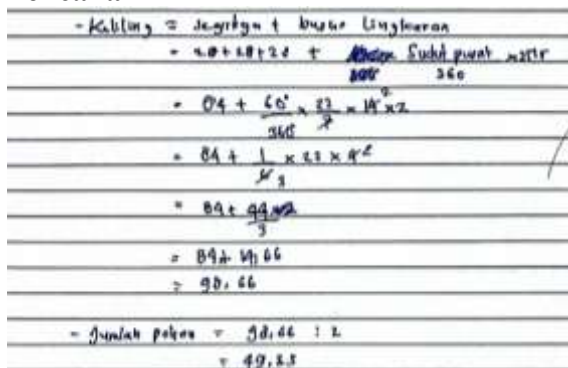 - Keliling = segitiga + busur lingkaran
= 28+28+28 + Sudut pusat x 2πr
360
= 84 + 60° x 22 x 14² x 2
360 7
= 84 + 1 x 22 x 4²
6 3
= 84 + 44
3
= 84 + 14,66
= 98,66
- Jumlah pohon = 98,66 : 2
= 49,33